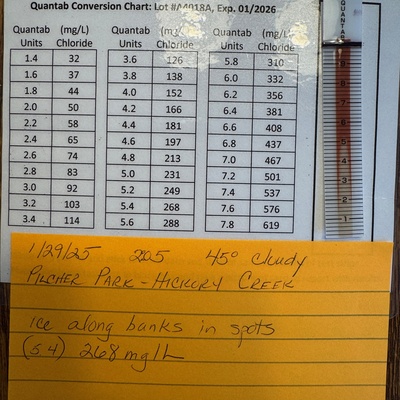 Quantab Conversion Chart: Lot #A4018A, Exp. 01/2026
Quantab Units (mg/L) Chloride Quantab Units (mg/L) Chloride Quantab Units (mg/L) Chloride
1.4 32 3.6 126 5.8 310
1.6 37 3.8 138 6.0 332
1.8 44 4.0 152 6.2 356
2.0 50 4.2 166 6.4 381
2.2 58 4.4 181 6.6 408
2.4 65 4.6 197 6.8 437
2.6 74 4.8 213 7.0 467
2.8 83 5.0 231 7.2 501
3.0 92 5.2 249 7.4 537
3.2 103 5.4 268 7.6 576
3.4 114 5.6 288 7.8 619
QUANTAB
9
8
7
6
5
4
3
2
1
1/29/25 45° cloudy
PILCHER PARK - HICKORY CREEK
ice along banks in spots
(5.4) 268 mg/L